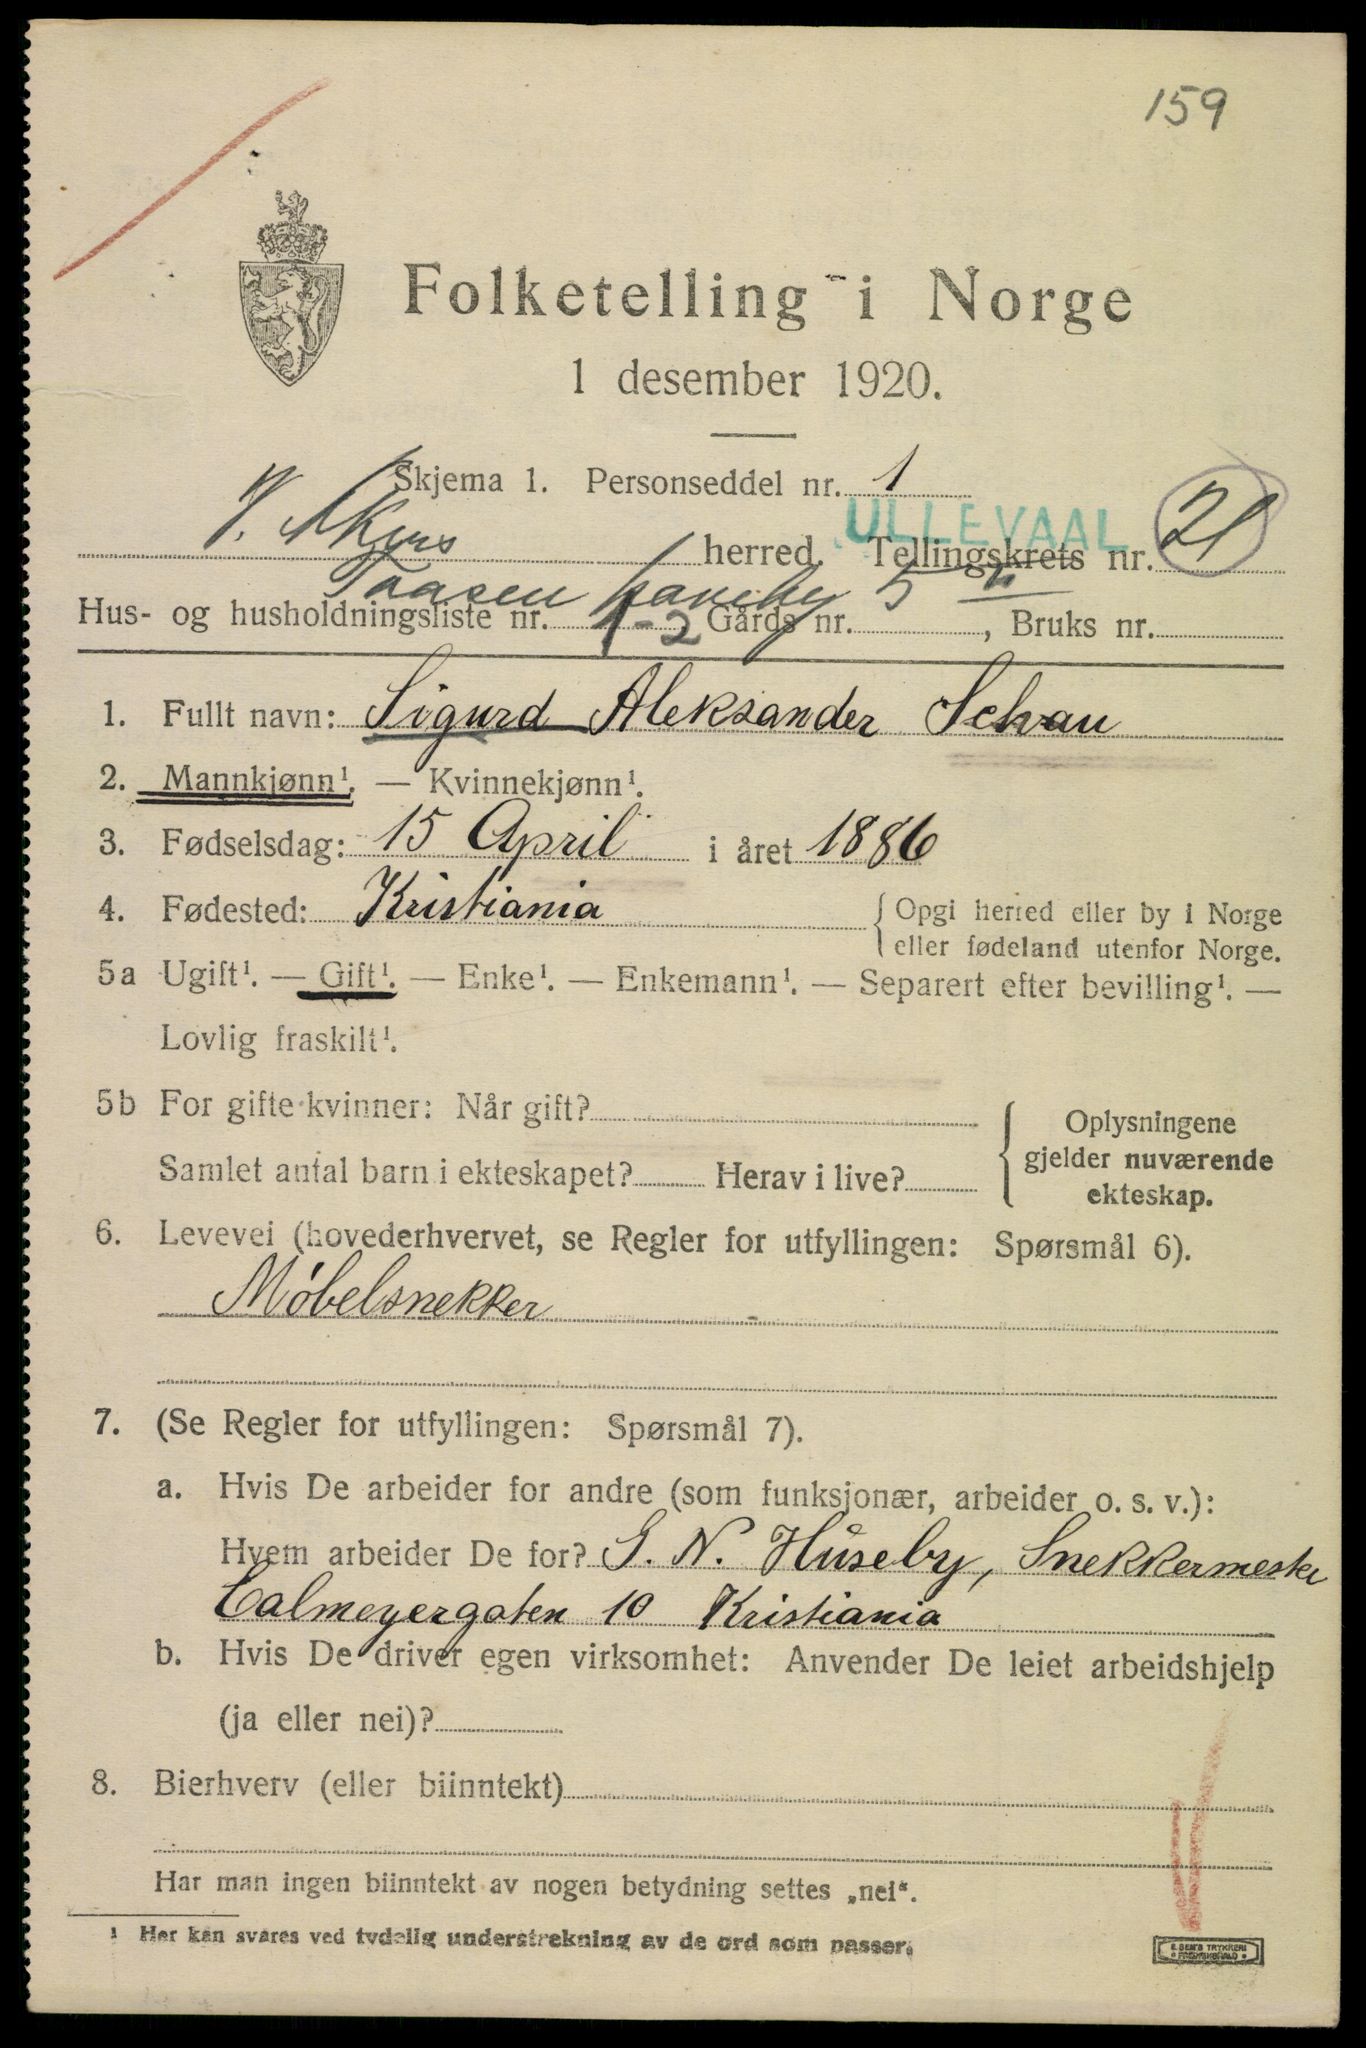 159
Folketelling i Norge
1 desember 1920.
Skjema 1. Personseddel nr. 1
V. Akers herred. ULLEVAAL Tellingskrets nr. 21
Taasen haveby 5
Hus- og husholdningsliste nr. 1-2 Gårds nr. , Bruks nr.
1. Fullt navn: Sigurd Aleksander Schau
2. Mannkjønn¹. — Kvinnekjønn¹.
3. Fødselsdag: 15 April i året 1886
4. Fødested: Kristiania { Opgi herred eller by i Norge
eller fødeland utenfor Norge.
5a Ugift¹. — Gift¹. — Enke¹. — Enkemann¹. — Separert efter bevilling¹. —
Lovlig fraskilt¹.
5b For gifte kvinner: Når gift? { Oplysningene
gjelder nuværende
ekteskap.
Samlet antal barn i ekteskapet? Herav i live?
6. Levevei (hovederhvervet, se Regler for utfyllingen: Spørsmål 6).
Møbelsnekker
7. (Se Regler for utfyllingen: Spørsmål 7).
a. Hvis De arbeider for andre (som funksjonær, arbeider o. s. v.):
Hvem arbeider De for? G. N. Huseby, Snekkermester
Calmeyergaten 10 Kristiania
b. Hvis De driver egen virksomhet: Anvender De leiet arbeidshjelp
(ja eller nei)?
8. Bierhverv (eller biinntekt)
Har man ingen biinntekt av nogen betydning settes „nei“.
¹ Her kan svares ved tydelig understrekning av de ord som passer.
E. SEM'S TRYKKERI
FREDRIKSHALD